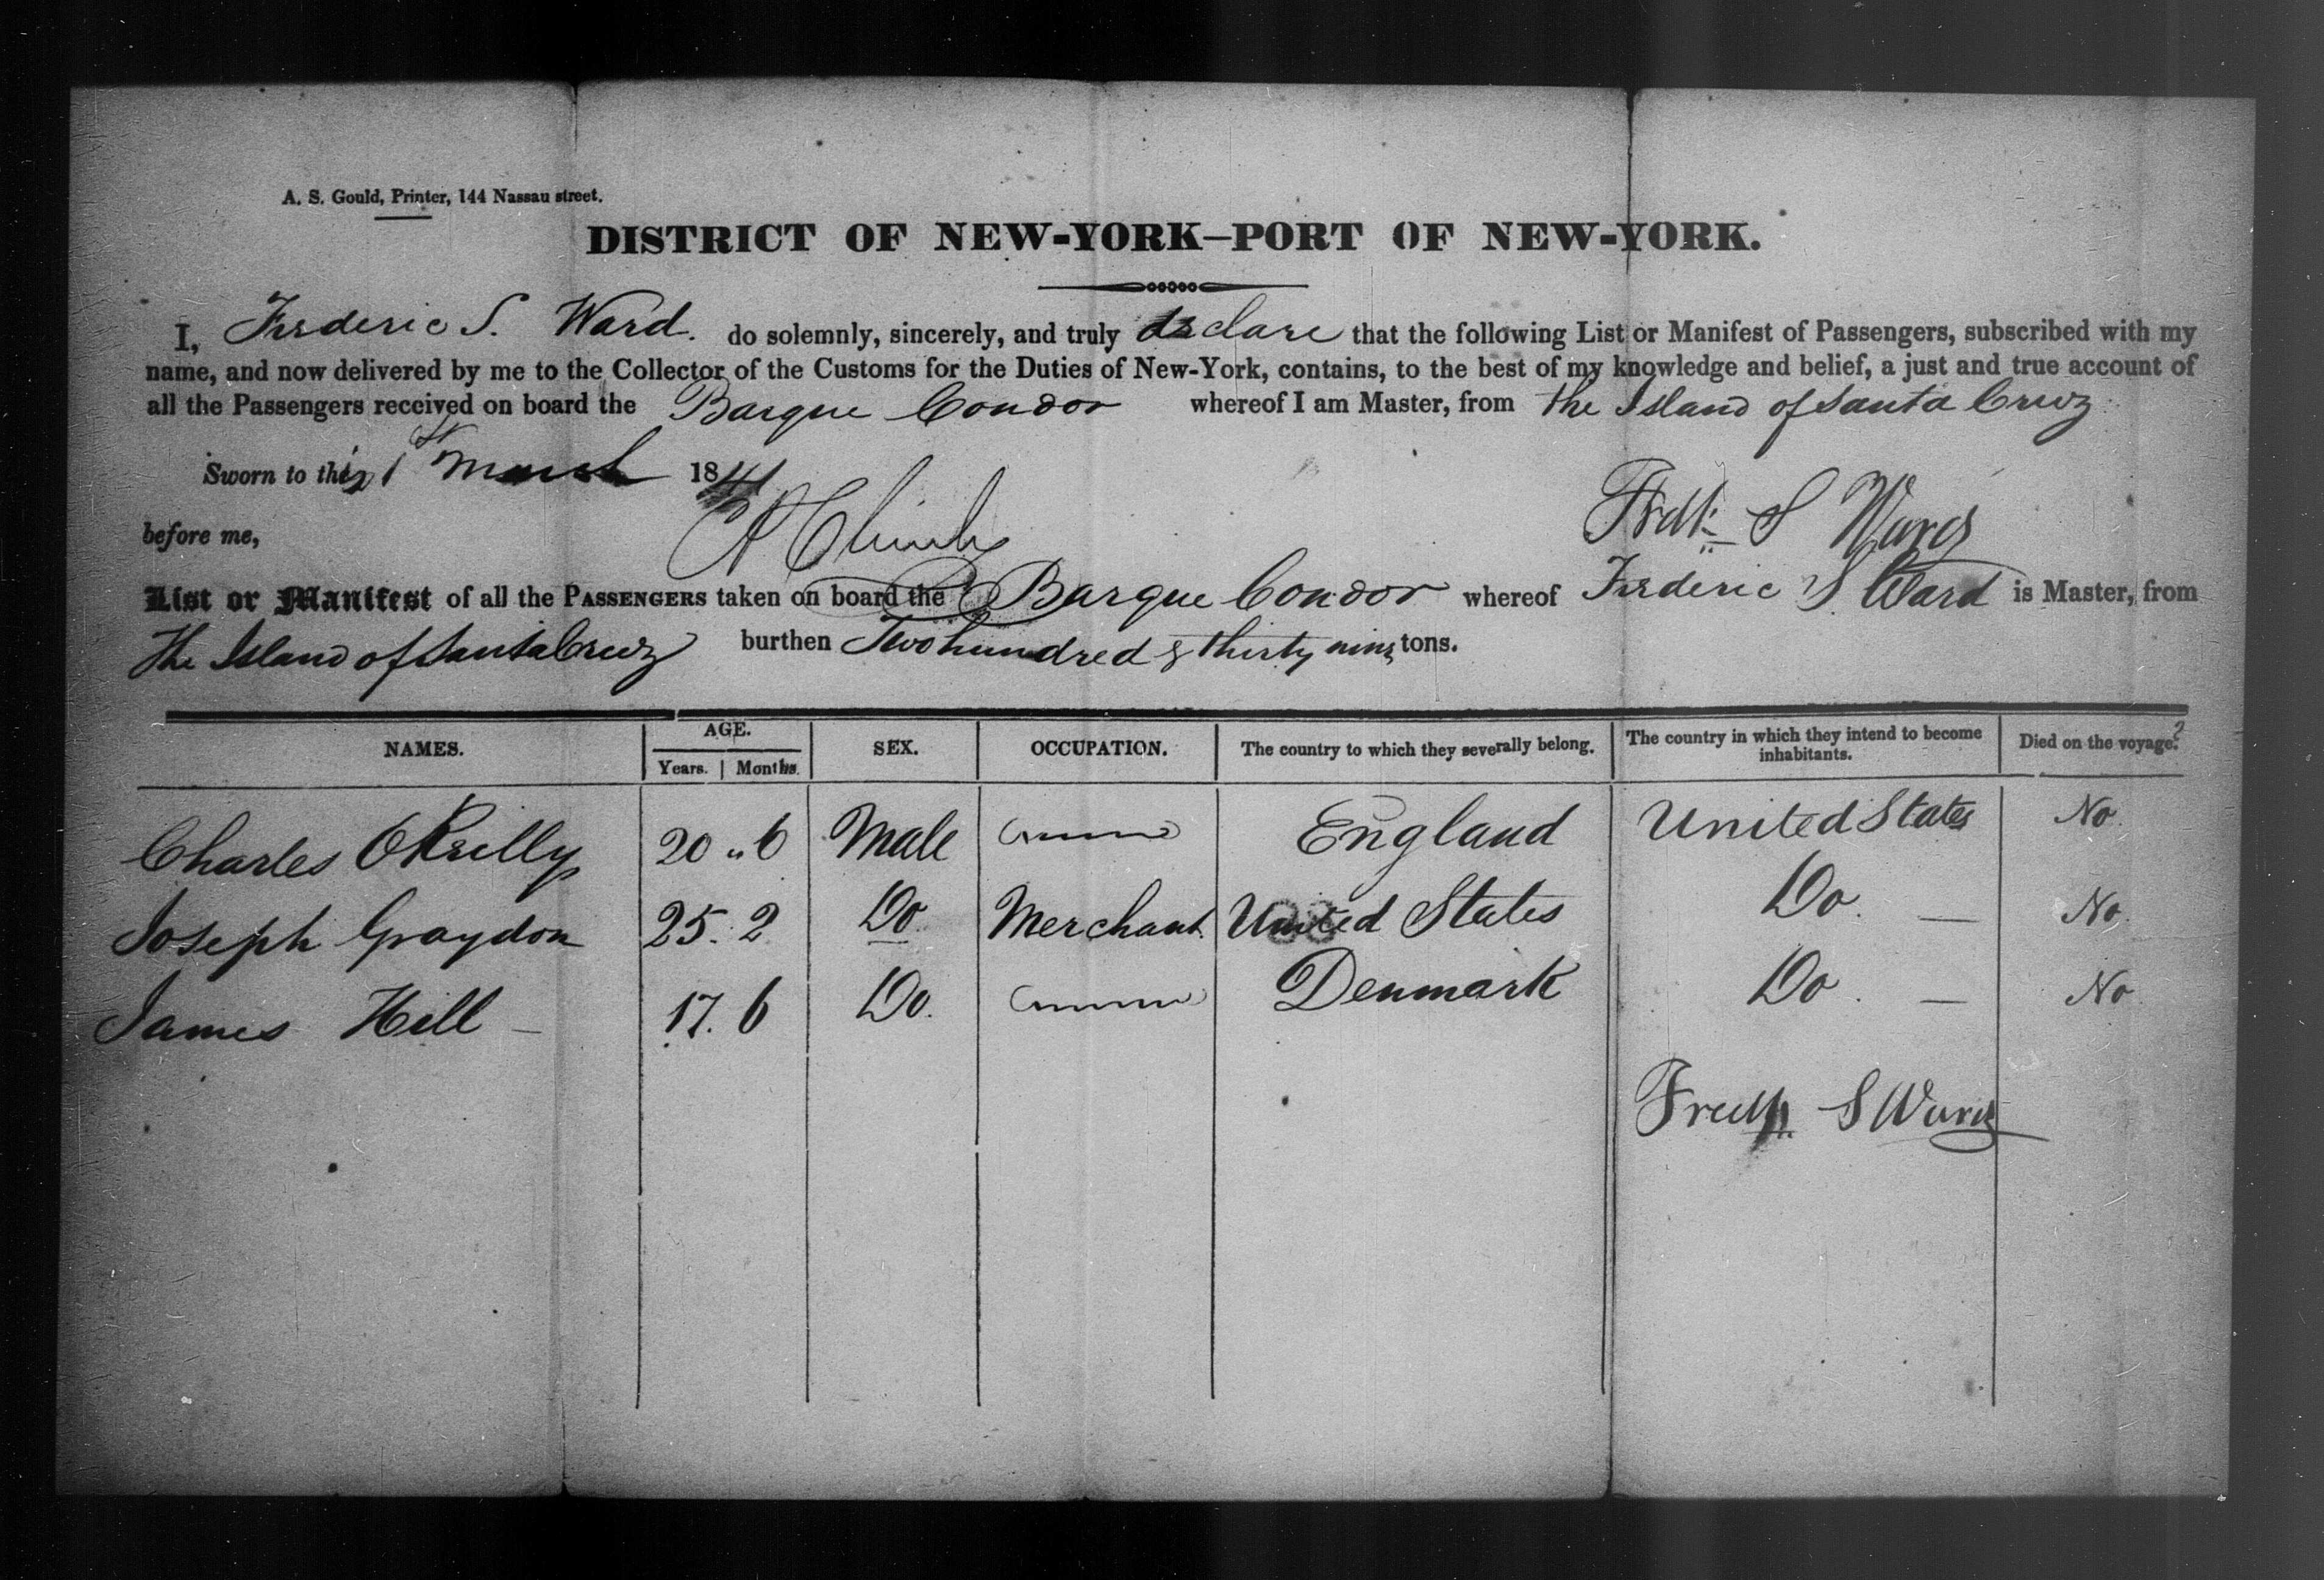 A. S. Gould, Printer, 144 Nassau street.
DISTRICT OF NEW-YORK—PORT OF NEW-YORK.
I, Frederic S. Ward. do solemnly, sincerely, and truly declare that the following List or Manifest of Passengers, subscribed with my
name, and now delivered by me to the Collector of the Customs for the Duties of New-York, contains, to the best of my knowledge and belief, a just and true account of
all the Passengers received on board the Barque Condor whereof I am Master, from the Island of Santa Cruz
Sworn to this 1st March 1841
before me,
Fredk S Ward
List or Manifest of all the PASSENGERS taken on board the Barque Condor whereof Frederic S. Ward is Master, from
the Island of Santa Cruz burthen Two hundred & thirty nine tons.
NAMES. AGE. Years. Months. SEX. OCCUPATION. The country to which they severally belong. The country in which they intend to become inhabitants. Died on the voyage.
Charles OReilly 20 " 6 Male England United States No
Joseph Graydon 25. 2 Do. Merchant. United States Do. — No
James Hill — 17. 6 Do. Denmark Do. — No
Fredk S Ward